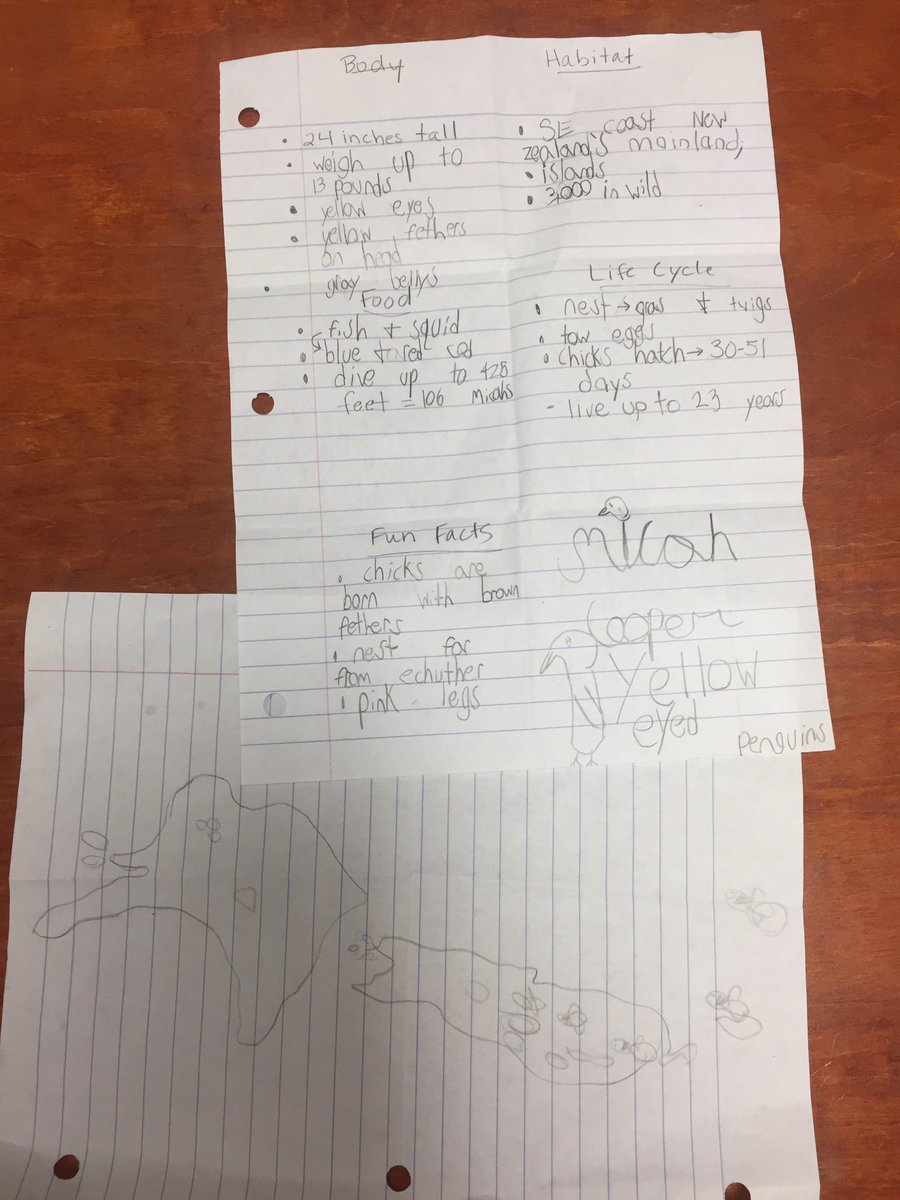 Body
24 inches tall
weigh up to
13 pounds
yellow eyes
yellow fethers
on head
gray bellys
Food
fish + squid
blue to red cod
dive up to 428
feet = 106 Micahs
Habitat
SE coast New
zealand's mainland,
islands
3,000 in wild
Life Cycle
nest → gras + twigs
tow eggs
chicks hatch → 30-51
days
- live up to 23 years
Fun Facts
chicks are
born with brown
fethers
nest for
from echuther
pink legs
Micah
Cooper
Yellow
eyed
Penguins